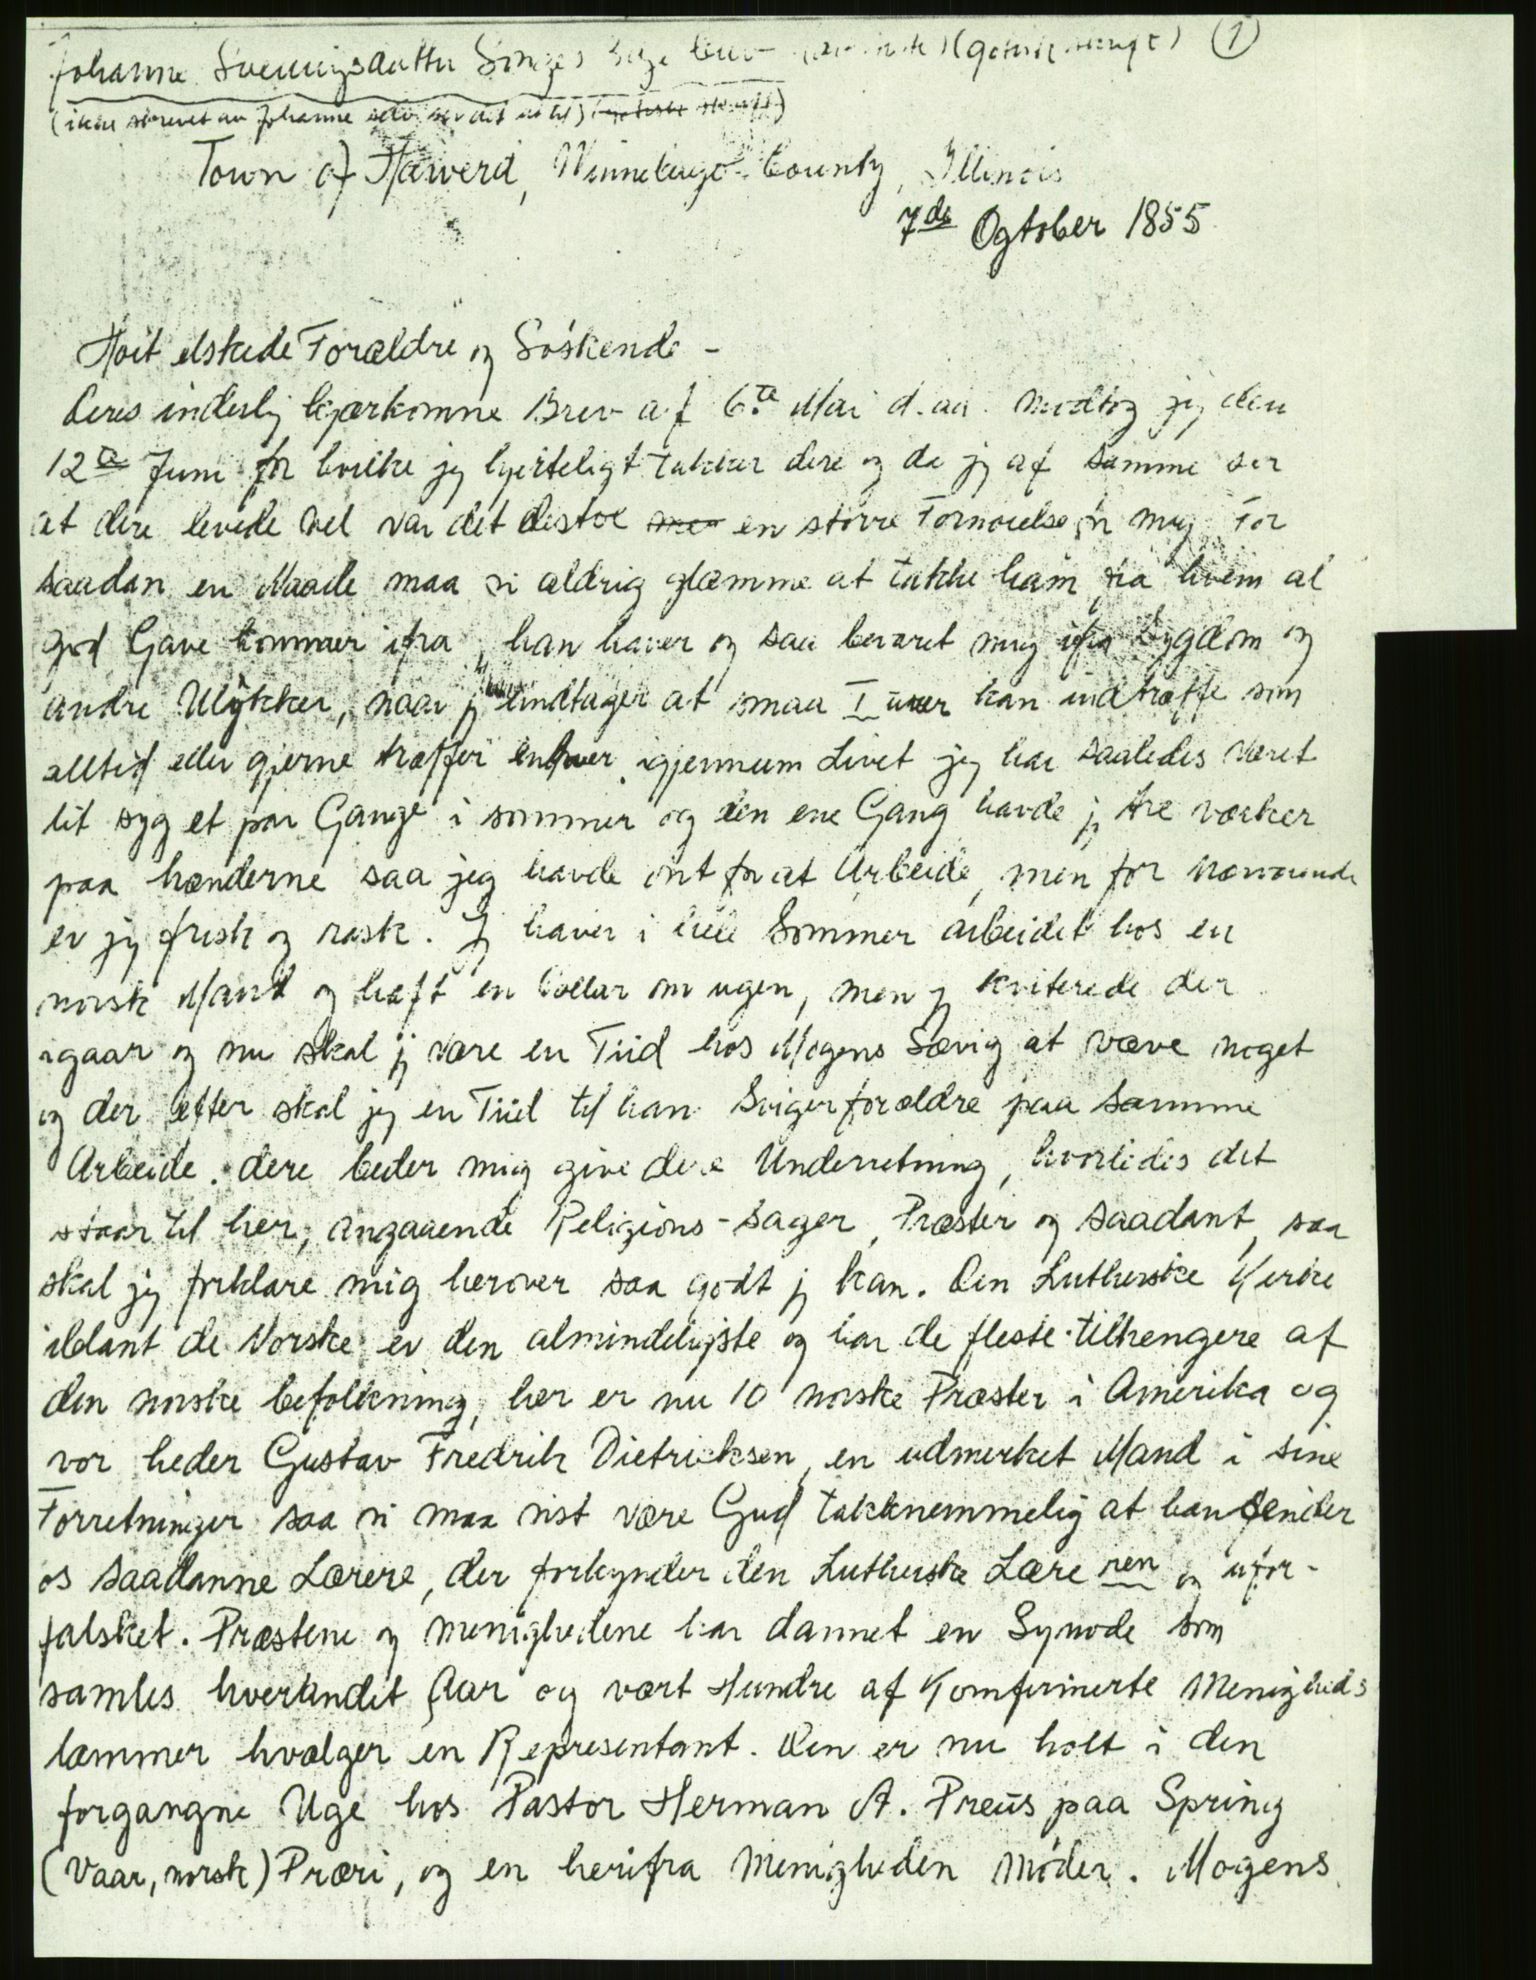 Johanne Sveningsdatter (gotisk skrift) (1)
(ikke skrevet av Johanne selv ser det ut til) (gotiske skrift)
Town of Haverd, Winnebago County, Illinois
7de Ogtober 1855
Høit elskede Forældre og Søskende -
Deres inderlig kjærkomne Brev af 6te Mai d. aa. modtog jeg den
12te Juni for hvilke jeg hjerteligt takker dere og da jeg af samme ser
at dere levede vel var det destoe en større Fornøielse for mig. For
saadan en Naade maa vi aldrig glæmme at takke ham fra hvem al
god Gave kommer ifra, han haver og saa bevaret mig ifra Sygdom og
andre Ulykker, naar jeg undtager at smaa I kan indtræffe som
alltid eller gjerne træffer enhver igjennem Livet jeg har saaledes været
lit syg et par Gange i sommer og den ene Gang havde jeg tre værker
paa hænderne saa jeg havde ont for at Arbeide, men for nærværende
er jeg frisk og rask. Jeg haver i hele Sommer arbeidet hos en
norsk Mand og haft en Dollar om ugen, men jeg kviterede der
igaar og nu skal jeg være en Tiid hos Mogens Sævig at væve noget
og der efter skal jeg en Tiid til han Svigerforældre paa samme
Arbeide. dere beder mig give dere Underretning, hvorledes det
staar til her, angaaende Religions-sager, Præster og saadant, saa
skal jeg forklare mig herover saa godt jeg kan. Den Lutherske Kerke
iblant de Norske er den almindeligste og har de fleste tilhengere af
den norske befolkning, her er nu 10 norske Præster i Amerika og
vor heder Gustav Fredrik Dietricksen, en udmerket Mand i sine
Forretninger saa vi maa vist være Gud takknemmelig at han sender
os saadanne Lærere, der forkynder den Lutherske Lære ren og ufor-
falsket. Præstene og menighedene har dannet en Synode som
samles hverandet Aar og vært Hundre af Komfirmerte Menigheds
læmmer hvælger en Representant. Den er nu holt i den
forgangne Uge hos Pastor Herman A. Preüs paa Spring
(Vaar, norsk) Præri, og en herifra Menigheden møder. Mogens